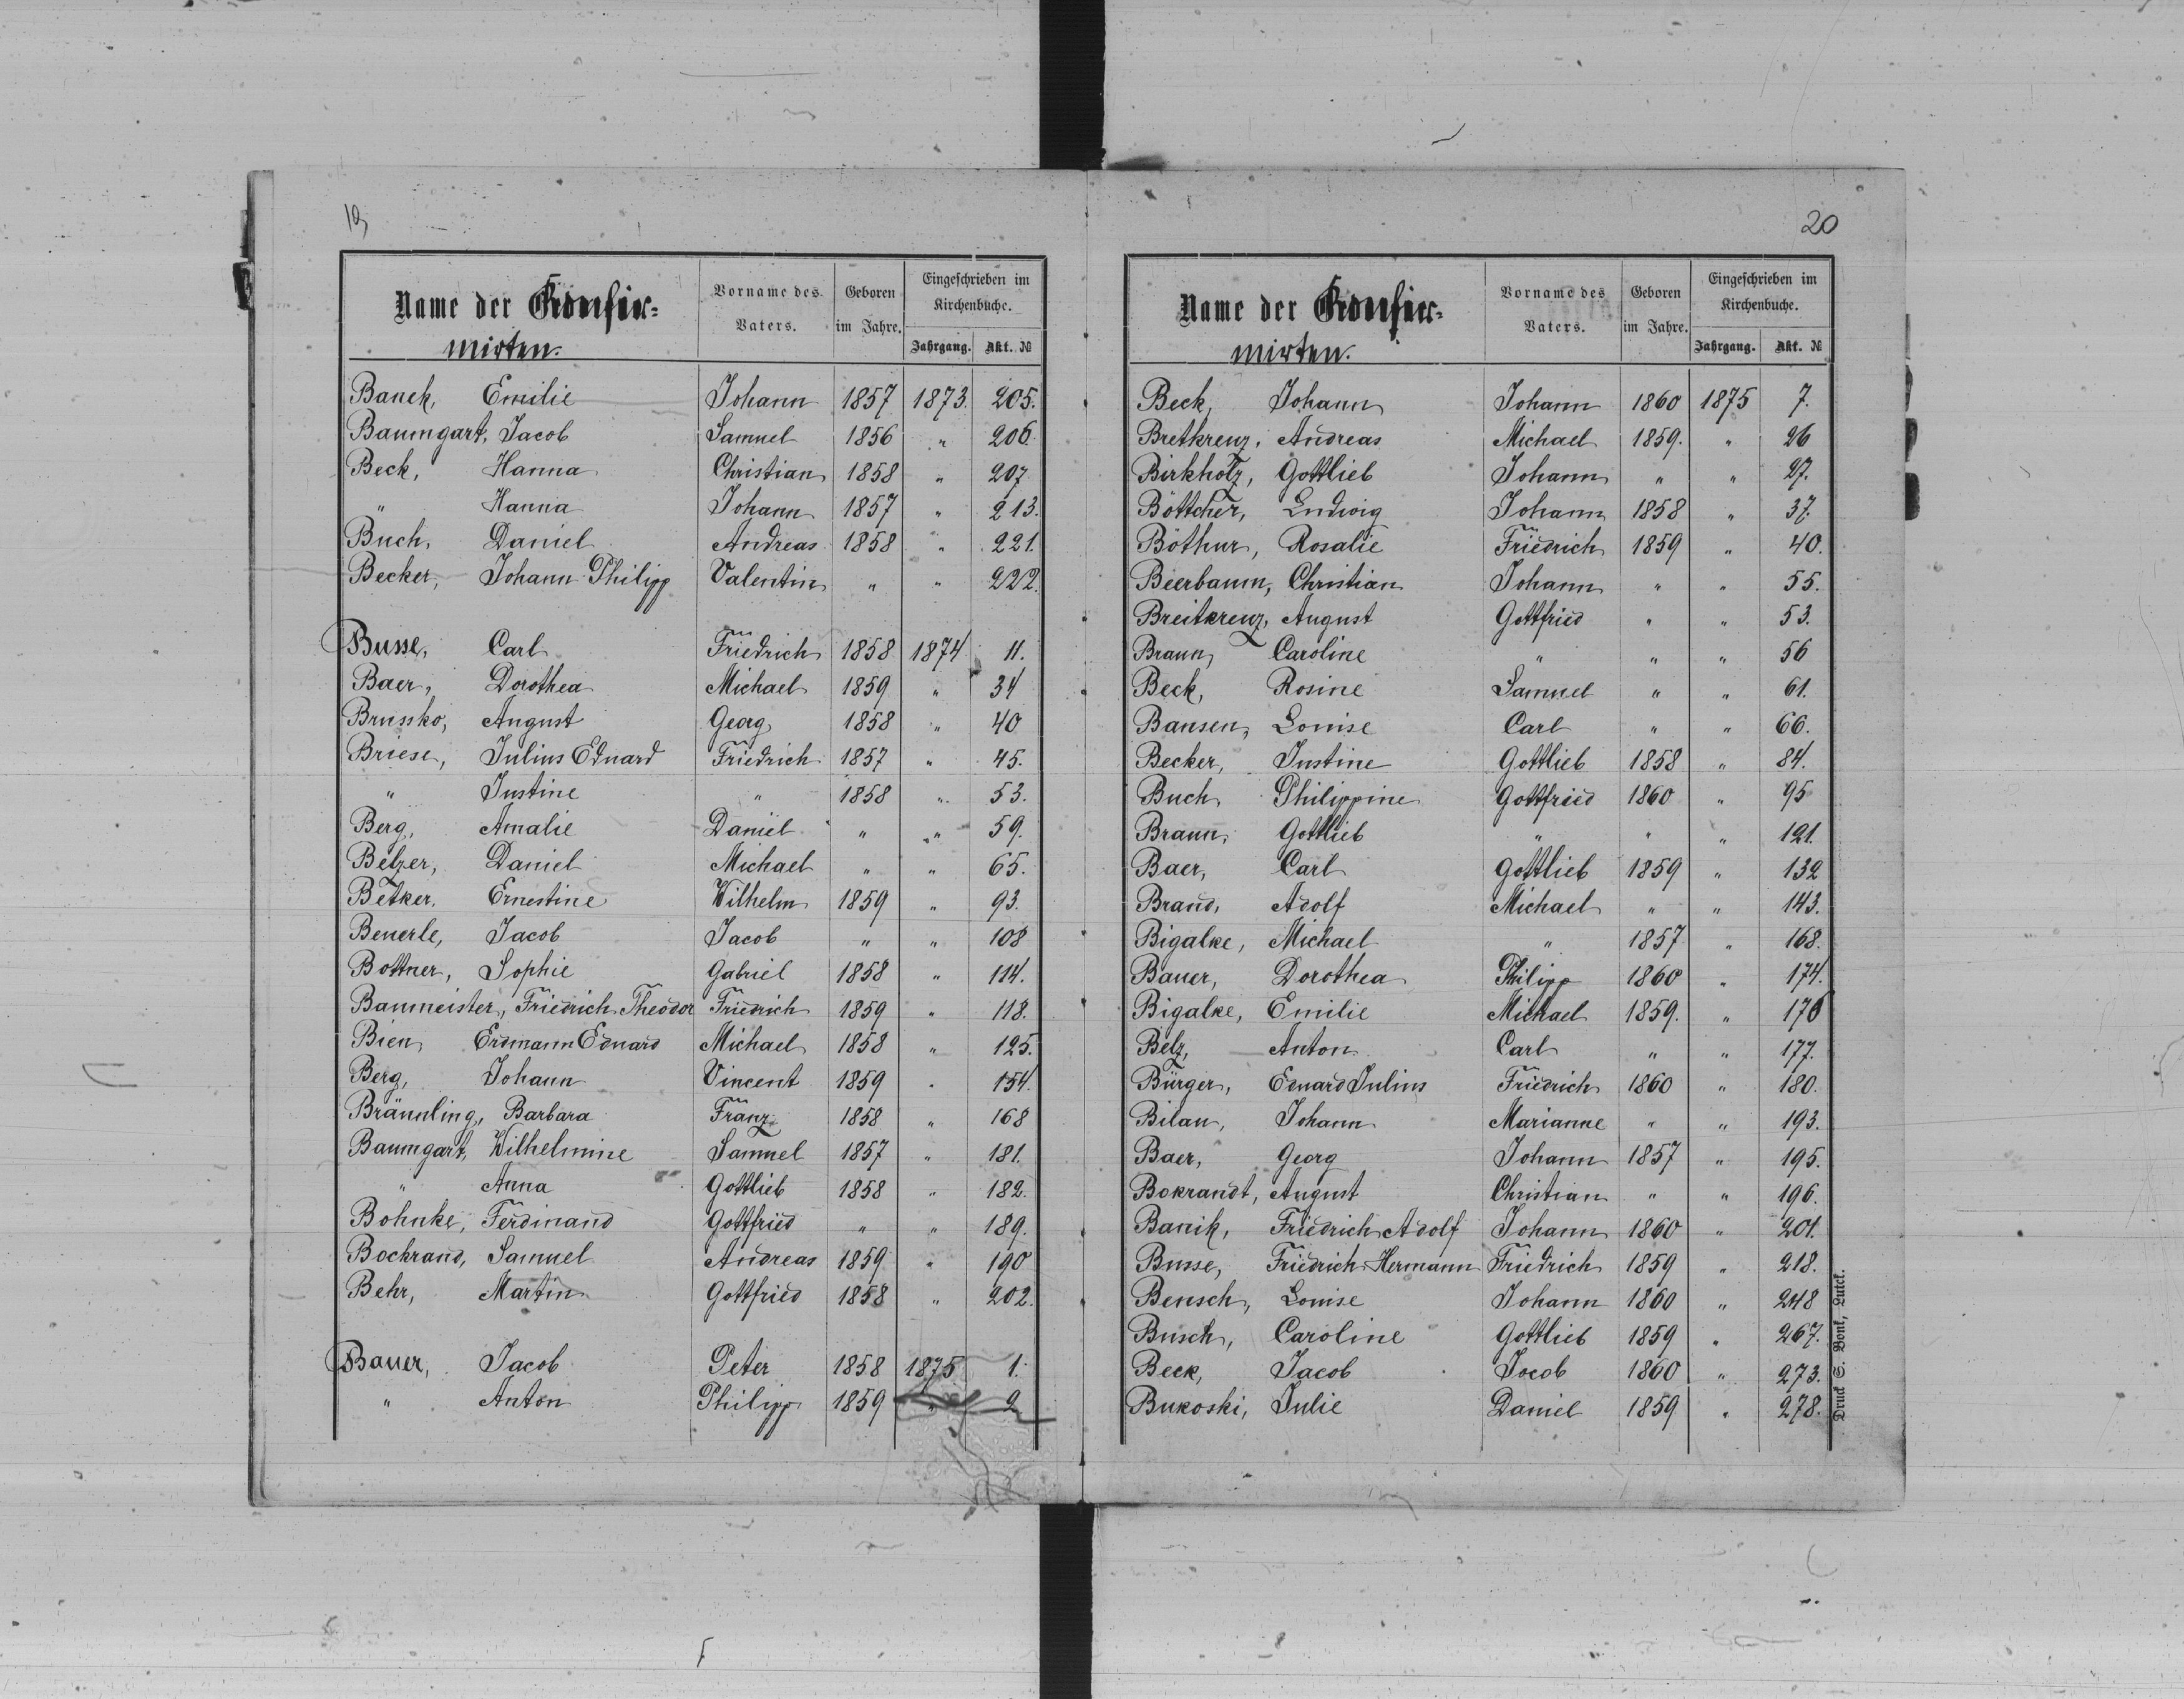 19
Name der Konfir=
mirten.
Vorname des Vaters.
Geboren im Jahre.
Eingeschrieben im Kirchenbuche.
Jahrgang. Akt. №
Banek, Emilie Johann 1857 1873. 205.
Baumgart, Jacob Samuel 1856 " 206.
Beck, Hanna Christian 1858 " 207
" Hanna Johann 1857 " 213.
Buch, Daniel Andreas 1858 " 221.
Becker, Johann Philipp Valentin " " 222.
Busse, Carl Friedrich 1858 1874 11.
Baer, Dorothea Michael 1859 " 34
Brussko, August Georg 1858 " 40
Briese, Julius Eduard Friedrich 1857 " 45.
" Justine " 1858 " 53.
Berg, Amalie Daniel " " 59.
Belzer, Daniel Michael " " 65.
Betker, Ernestine Wilhelm 1859 " 93.
Beuerle, Jacob Jacob " " 108
Bottner, Sophie Gabriel 1858 " 114.
Baumeister, Friedrich Theodor Friedrich 1859 " 118.
Bien, Erdmann Eduard Michael 1858 " 125.
Berg, Johann Vincent 1859 " 154.
Bräunling, Barbara Franz 1858 " 168
Baumgart, Wilhelmine Samuel 1857 " 181.
" Anna Gottlieb 1858 " 182.
Bohnke, Ferdinand Gottfried " " 189.
Bockrand, Samuel Andreas 1859 " 190
Behr, Martin Gottfried 1858 " 202.
Bauer, Jacob Peter 1858 1875 1.
" Anton Philipp 1859 " 2
20
Name der Konfir=
mirten.
Vorname des Vaters.
Geboren im Jahre.
Eingeschrieben im Kirchenbuche.
Jahrgang. Akt. №
Beck, Johann Johann 1860 1875 7.
Bretkreuz, Andreas Michael 1859. " 26
Birkholz, Gottlieb Johann " " 27.
Böttcher, Ludwig Johann 1858 " 37.
Böthur, Rosalie Friedrich 1859 " 40.
Beerbaum, Christian Johann " " 55.
Breitkreuz, August Gottfried " " 53.
Braun, Caroline " " " 56
Beck, Rosine Samuel " " 61.
Bansen, Louise Carl " " 66.
Becker, Justine Gottlieb 1858 " 84.
Buch, Philippine Gottfried 1860 " 95
Braun, Gottlieb " " " 121.
Baer, Carl Gottlieb 1859 " 132
Brand, Adolf Michael " " 143.
Bigalke, Michael " 1857 " 168.
Bauer, Dorothea Philipp 1860 " 174.
Bigalke, Emilie Michael 1859. " 176
Belz, Anton Carl " " 177.
Bürger, Eduard Julius Friedrich 1860 " 180.
Bilau, Johann Marianne " " 193.
Baer, Georg Johann 1857 " 195.
Bokrandt, August Christian " " 196.
Banik, Friedrich Adolf Johann 1860 " 201.
Busse, Friedrich Hermann Friedrich 1859 " 218.
Bensch, Louise Johann 1860 " 248
Busch, Caroline Gottlieb 1859 " 267.
Beck, Jacob Jocob 1860 " 273.
Bukoski, Julie Daniel 1859 " 278.
Druck S. Bonk, Luck.